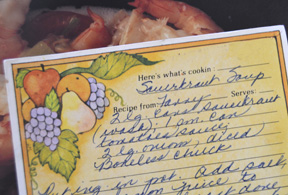 Here's what's cookin: Sauerkraut Soup
Recipe from: Serves:
2 lg. cans Sauerkraut
(wash), 1 sm. can
tomatoes sauce,
2 lg. onion, diced
Boneless chuck
Put in pot. Add salt,
juice to